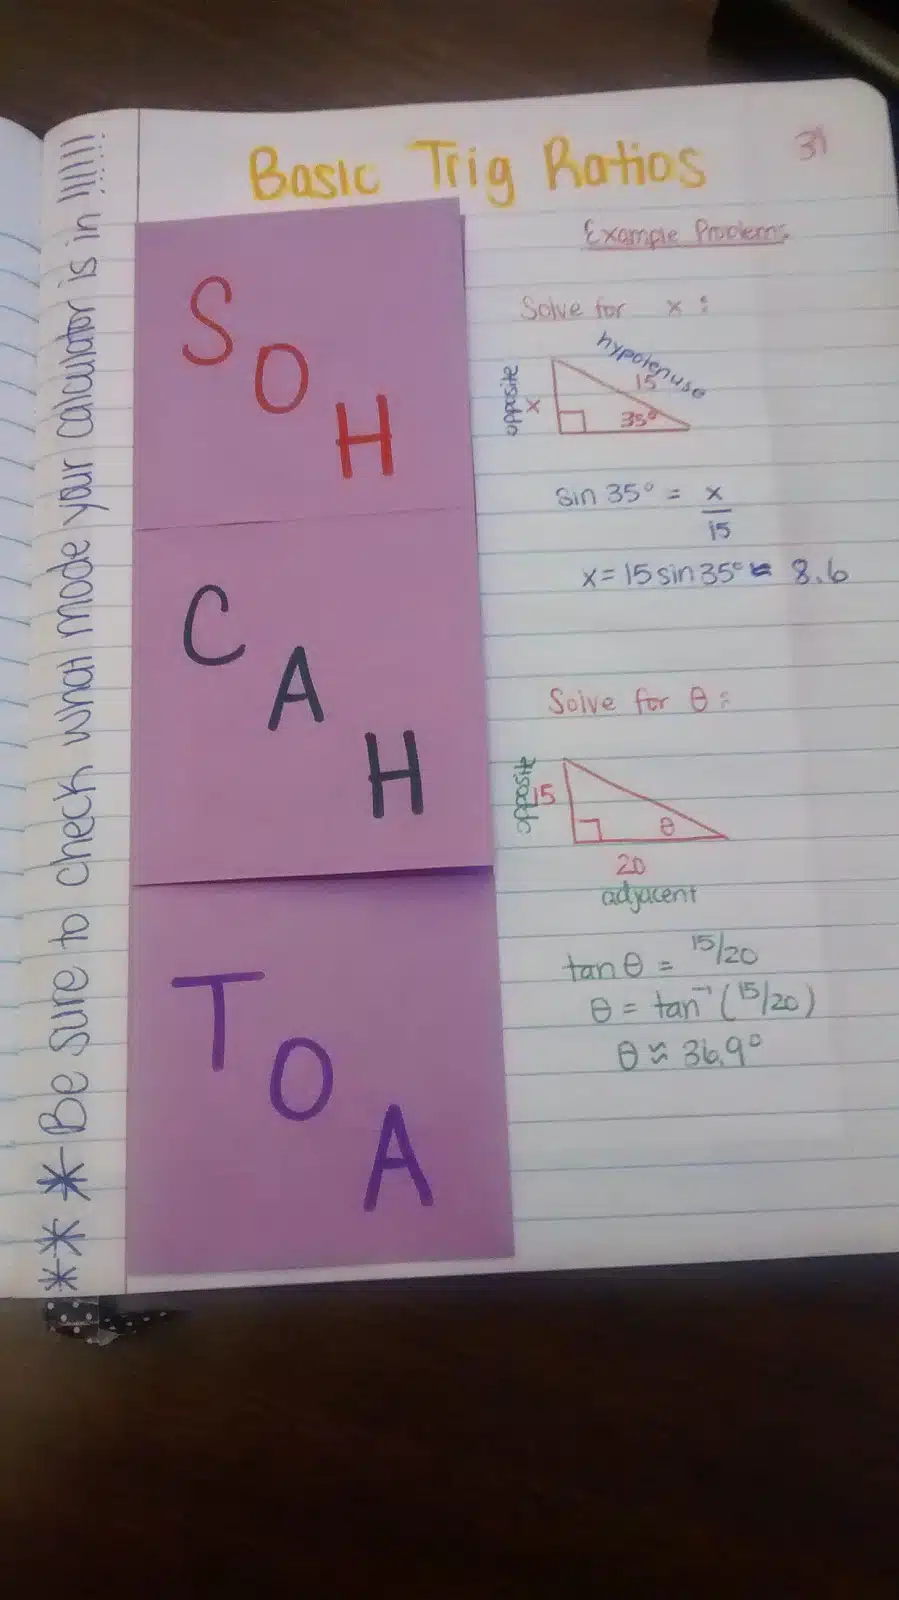 Basic Trig Ratios
31
*** Be sure to check what mode your calculator is in !!!!!!
S
O
H
C
A
H
T
O
A
Example Problems
Solve for x:
hypotenuse
opposite
x
15
35°
sin 35° = x
15
x = 15 sin 35° ≈ 8.6
Solve for θ:
opposite
15
θ
20
adjacent
tan θ = 15/20
θ = tan⁻¹ (15/20)
θ ≈ 36.9°